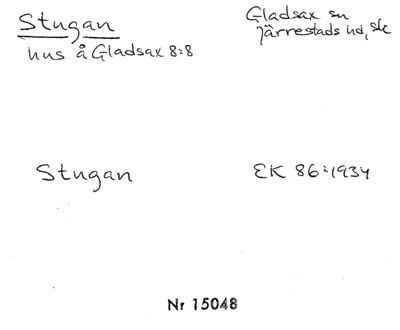 Stugan
hus å Gladsax 8:8
Gladsax sn
Järrestads hd, sk
Stugan
EK 86:1934
Nr 15048